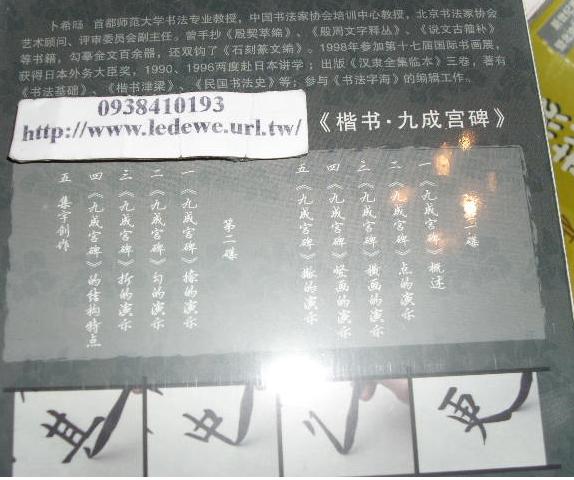 卜希旸 首都师范大学书法专业教授，中国书法家协会培训中心教授，北京书法家协会
艺术顾问、评审委员会副主任。曾手抄《殷契萃编》、《殷周文字释丛》、《说文古籀补》
等书籍，勾摹金文百余器，还双钩了《石刻篆文编》。1998年参加第十七届国际书画展，
获得日本外务大臣奖，1990、1996两度赴日本讲学；出版《汉隶全集临本》三卷，著有
《书法基础》、《楷书津梁》、《民国书法史》等；参与《书法字海》的编辑工作。
0938410193
http://www.ledewe.url.tw/
《楷书·九成宫碑》
一碟
一 《九成宫碑》概述
二 《九成宫碑》点的演示
三 《九成宫碑》横画的演示
四 《九成宫碑》竖画的演示
五 《九成宫碑》撇的演示
第二碟
一 《九成宫碑》捺的演示
二 《九成宫碑》勾的演示
三 《九成宫碑》折的演示
四 《九成宫碑》的结构特点
五 集字创作
其
中
更